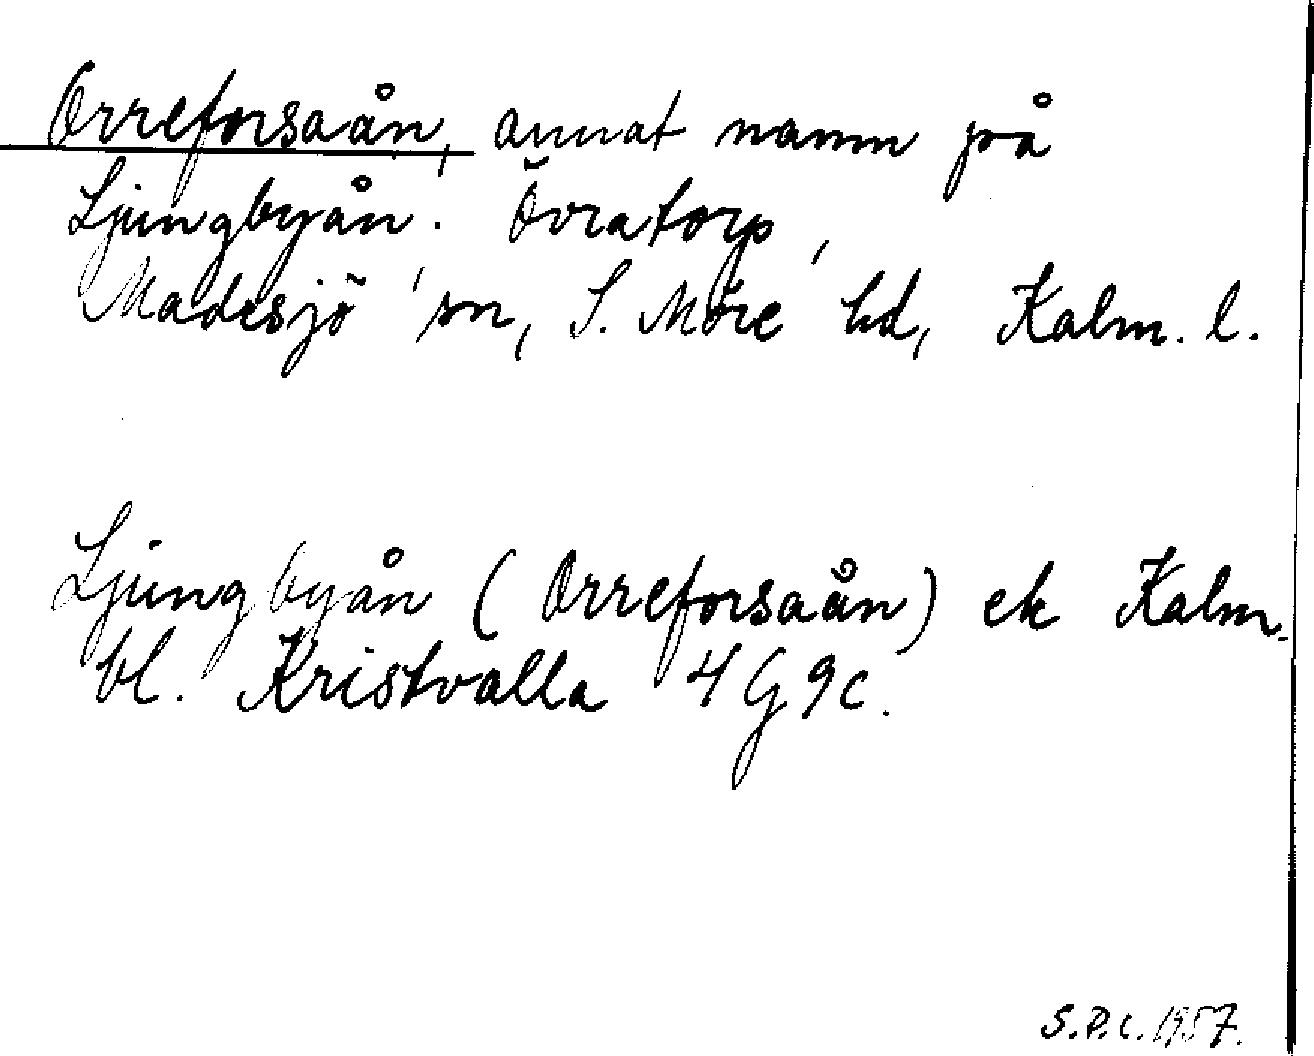 Orreforsaån, annat namn på
Ljungbyån. Övratorp,
Madesjö sn, S. Möre hd, Kalm. l.
Ljungbyån (Orreforsaån) ek Kalm.
bl. Kristvalla 4G 9c.
S.P.C. 1957.